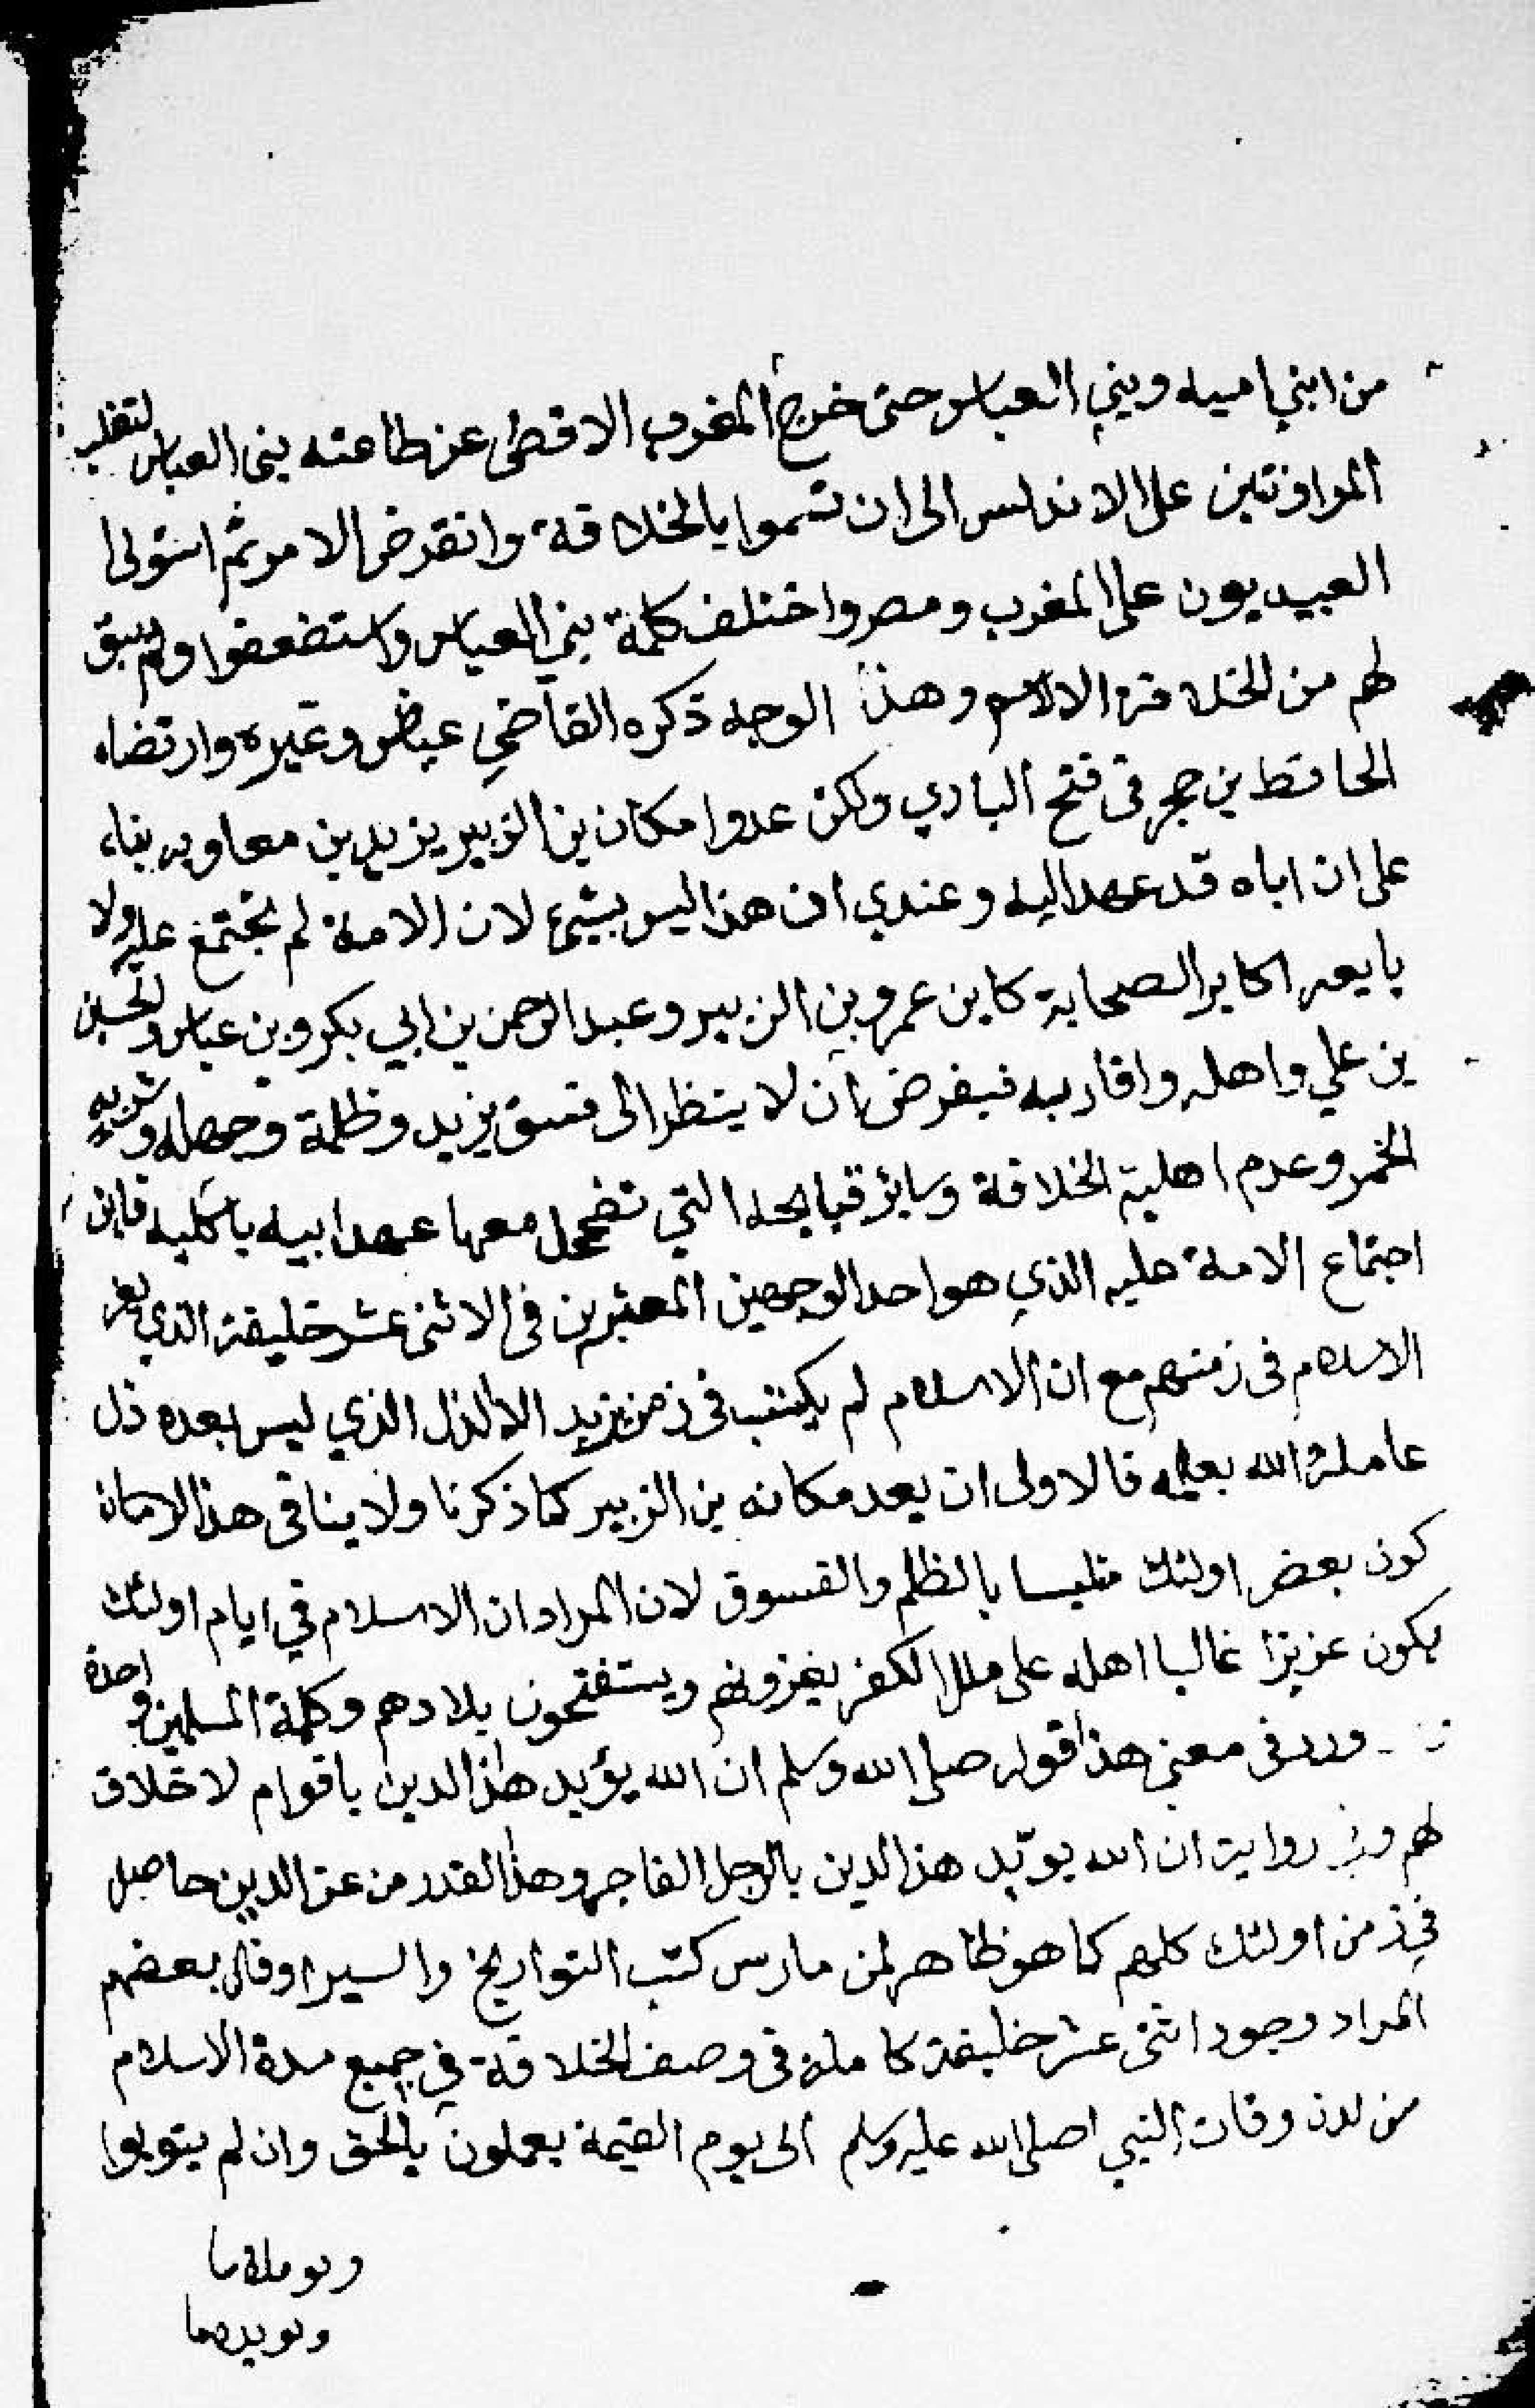 من ابني اميه وبني العباس حتى خرج المغرب الاقصى عن طاعته بنى العباس لتغلب
المراونتين على الاندلس الى ان تسموا بالخلافة وانقرض الامر ثم استولى
العبيديون على المغرب ومصر واختلف كلمة بني العباس واستضعفوا ولم يبق
لهم من الخلافة الا الاسم وهذا الوجه ذكره القاضي عياض وغيره وارتضاه
الحافظ بن حجر فى فتح الباري ولكن عدوا مكان بن الزبير يزيد بن معاويه بناء
على ان اباه قد عهد اليه وعندي ان هذا ليس بشيء لان الامة لم تجتمع عليه ولا
بايعه اكابر الصحابة كابن عمر وبن الزبير وعبد الرحمن بن ابي بكر وبن عباس والحسين
بن علي واهله واقاربه فبفرض ان لا ينظر الى فسق يزيد وظلمة وجهله وشربه
الخمر وعدم اهلية الخلافة وسائر قبايحه التي تضمحل معها عهد ابيه بالكليه فاين
اجتماع الامة عليه الذي هو احد الوجهين المعتبرين فى الاثنى عشر خليفة الذي يعز
الاسلام فى زمنهم مع ان الاسلام لم يكتسب فى زمن يزيد الا الذل الذي ليس بعده ذل
عامله الله بعدله فالاولى ان يعد مكانه بن الزبير كما ذكرنا ولا ينافى هذا الامان
كون بعض اولئك متلبسا بالظلم والفسوق لان المراد ان الاسلام في ايام اولئك
يكون عزيزا غالبا اهله على ملل الكفر يغزونهم ويستفتحون بلادهم وكلمة المسلمين واحدة
وورد فى معنى هذا قوله صلى الله وسلم ان الله يؤيد هذا الدين باقوام لا خلاق
لهم وفي رواية ان الله يويد هذا الدين بالرجل الفاجر وهذا القدر من عز الدين حاصل
في زمن اولئك كلهم كما هو ظاهر لمن مارس كتب التواريخ والسير او قال بعضهم
المراد وجود اثنى عشر خليفة كاملة فى وصف الخلافة في جميع مدة الاسلام
من لدن وفات النبي اصلى الله عليه وسلم الى يوم القيمة يعملون بالحق وان لم يتوبوا